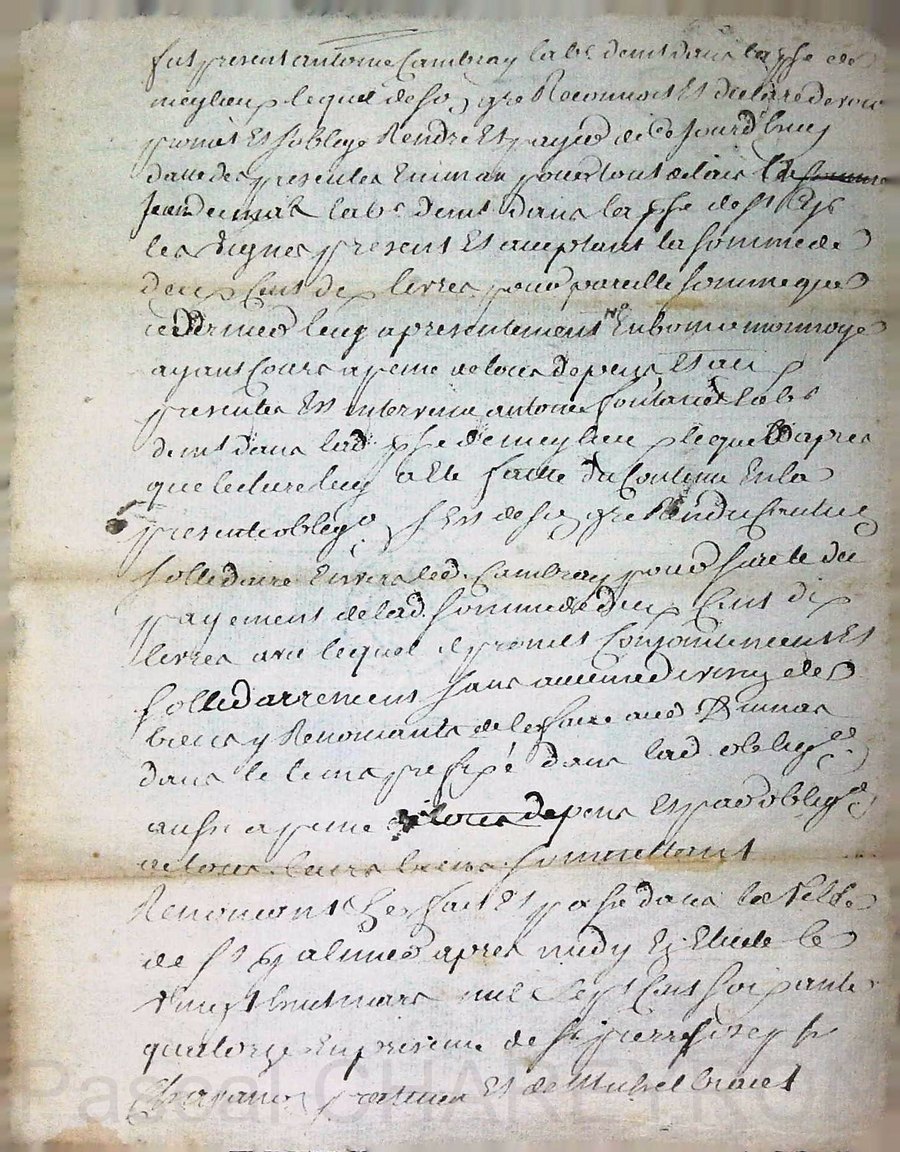 fut present antoine Cambray lab.r demt dans la psse de
meylieu lequel de so gre Reconnoit Et declare devoir
promet Et soblige Rendre Et payer dice Jourd'huy
datte des presentes En un an pour tout delais
Jean lab.r demt dans la psse de St Cyr
les Vignes present Et acceptant la somme de
deux Cent dix livres pour pareille somme que
ce dernier luy a presentement No En bonne monnoye
ayant Cours a peine de tous depens Et aux
presentes Est intervenu antoine fontanel lab.r
demt dans lad psse de meylieu lequel apres
que lecture luy a Ete faitte du Contenu En la
presente oblig.on s'Est de so gre Rendu Caution
sollidaire Envers led. Cambray pour surete du
payement de lad. somme de deux Cent dix
livres avec lequel il promet Conjointement Et
sollidairement sans aucune division de
biens y Renoncants de les faire avoir
dans le tems prefixé dans lad. oblig.on
aussi a peine de tous depens Et par oblig.on
de tous leurs biens Soumettant
Renoncant fait Et passé dans la Ville
de St galmier apres midy Ez Etude le
Vingt huit mars mil Sept Cent soixante
quatorze En presence de Sr pierre Joseph
praticien Et de Michel
Pascal CHAREYRON